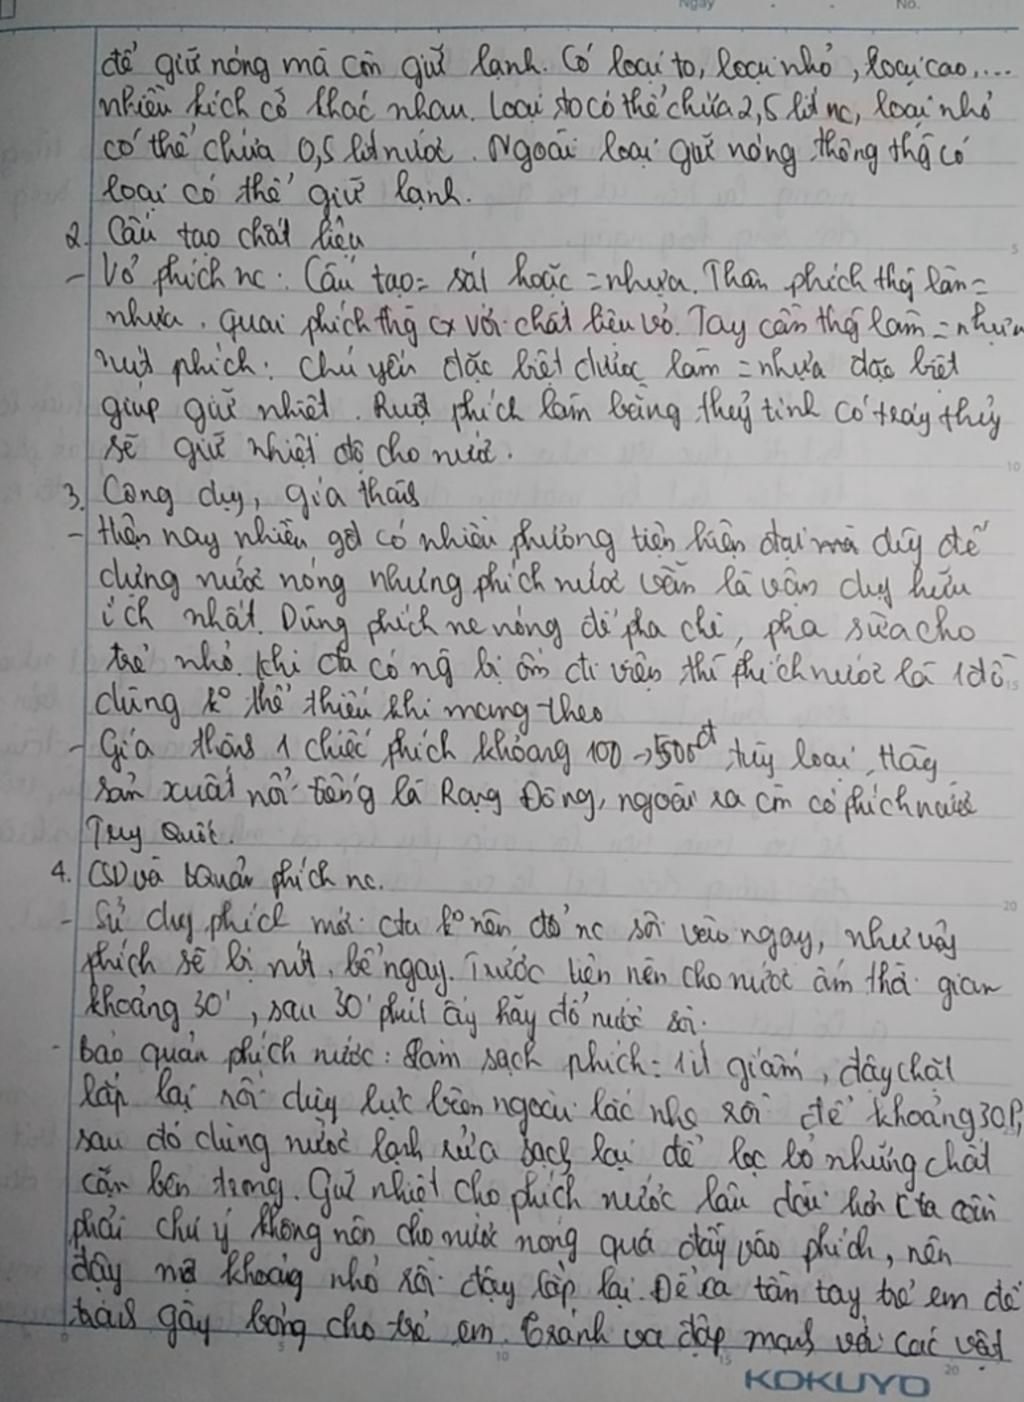 Ngày No.
để giữ nóng mà còn giữ lạnh. Có loại to, loại nhỏ, loại cao,....
nhiều kích cỡ khác nhau. Loại to có thể chứa 2,5 lít nc, loại nhỏ
có thể chứa 0,5 lít nước. Ngoài loại giữ nóng thông thg có
loại có thể giữ lạnh.
2. Cấu tạo chất liệu
- Vỏ phích nc: Cấu tạo = sắt hoặc = nhựa. Thân phích thg làm =
nhựa. Quai phích thg cx với chất liệu vỏ. Tay cầm thg làm = nhựa
nút phích: chủ yếu đặc biệt được làm = nhựa đặc biệt
giúp giữ nhiệt. Ruột phích làm bằng thuỷ tinh có tráng thủy
sẽ giữ nhiệt độ cho nước.
3. Công dụng, giá thành
- Hiện nay nhiều gđ có nhiều phương tiện hiện đại mà dùng để
đựng nước nóng nhưng phích nước vẫn là vận dụng hữu
ích nhất. Dùng phích nc nóng để pha chế, pha sữa cho
trẻ nhỏ. Khi cta có ng bị ốm đi viện thì phích nước là 1 đồ
dùng k° thể thiếu khi mang theo
- Giá thành 1 chiếc phích khoảng 100 → 500đ tùy loại. Hãng
sản xuất nổi tiếng là Rạng Đông, ngoài ra còn có phích nước
Trung Quốc.
4. CSD và bquản phích nc.
- Sử dụng phích mới cta k° nên đổ nc sôi vào ngay, như vậy
phích sẽ bị nứt, bể ngay. Trước tiên nên cho nước ấm thời gian
khoảng 30', sau 30' phút ấy hãy đổ nước sôi.
- Bảo quản phích nước: Làm sạch phích = 1 ít giấm, đậy chặt
lắp lại rồi dùng lực bên ngoài lắc nhẹ rồi để khoảng 30P,
sau đó dùng nước lạnh rửa sạch lại để lọc bỏ những chất
cặn bên trong. Giữ nhiệt cho phích nước lâu dài hơn cta cần
phải chú ý không nên cho nước nóng quá đầy vào phích, nên
đậy khoảng nhỏ rồi đậy lắp lại. Để xa tầm tay trẻ em để
tránh gây bỏng cho trẻ em. tránh va đập mạnh với các vật
KOKUYO